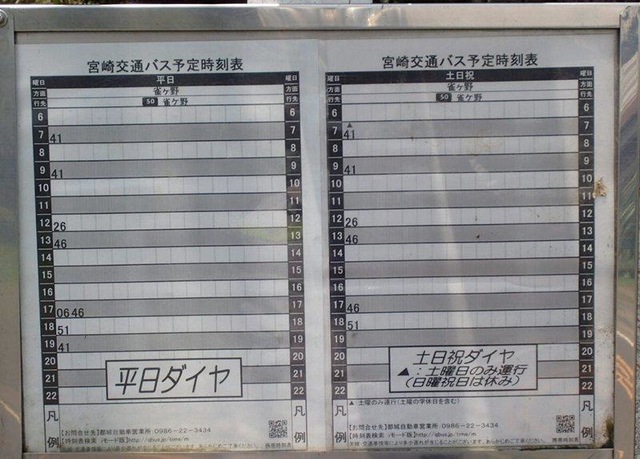 宮崎交通バス予定時刻表
曜日 平日 曜日
方面 雀ヶ野 方面
行先 50 雀ケ野 行先
6 6
7 41 7
8 8
9 41 9
10 10
11 11
12 26 12
13 46 13
14 14
15 15
16 16
17 06 46 17
18 51 18
19 41 19
20 20
21 21
22 22
平日ダイヤ
凡例 凡例
【お問合せ先】都城自動車営業所 0986-22-3434
【時刻表検索 iモード版】http://qbus.jp/time/m
宮崎交通バス予定時刻表
曜日 土日祝 曜日
方面 雀ヶ野 方面
行先 50 雀ケ野 行先
6 6
7 ▲41 7
8 8
9 41 9
10 10
11 11
12 26 12
13 46 13
14 14
15 15
16 16
17 46 17
18 51 18
19 19
20 20
21 21
22 22
土日祝ダイヤ
▲:土曜日のみ運行
(日曜祝日は休み)
凡例 凡例
▲ 土曜のみ運行(土曜の学休日を含む)
【お問合せ先】都城自動車営業所 0986-22-3434
【時刻表検索 iモード版】http://qbus.jp/time/m